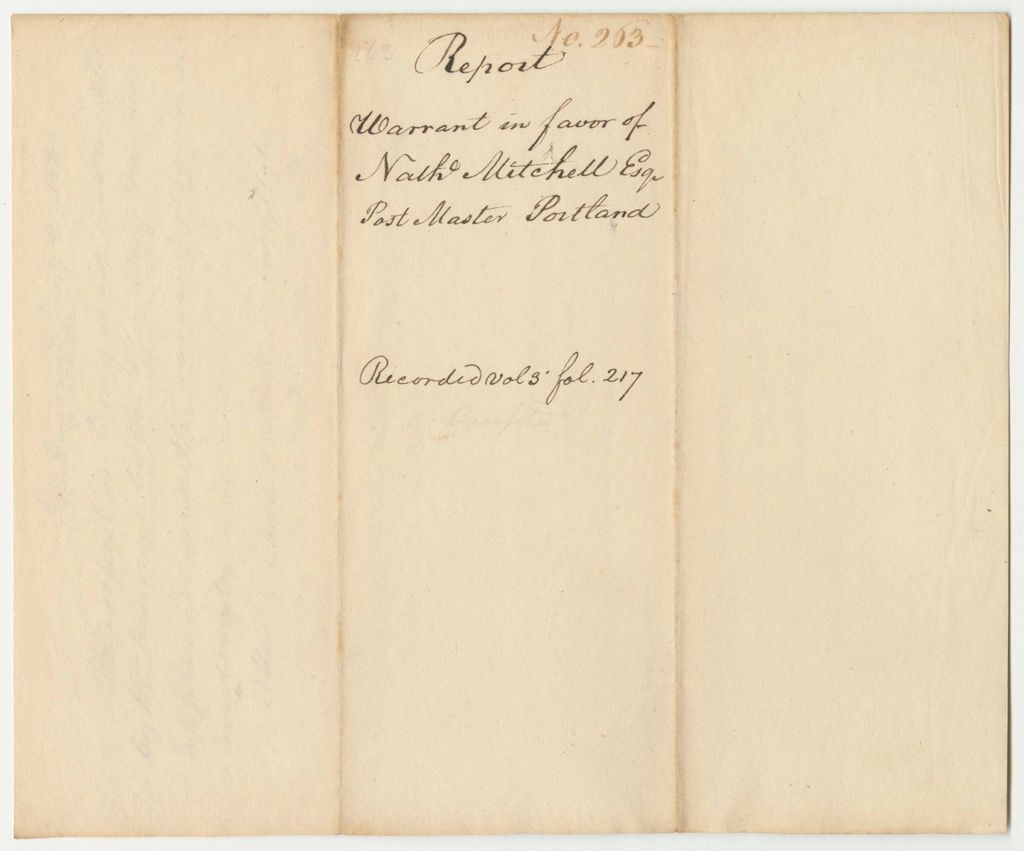 No. 263
263
Report
Warrant in favor of
Nath'l Mitchell Esqr
Post Master Portland
Recorded vol 3 fol. 217